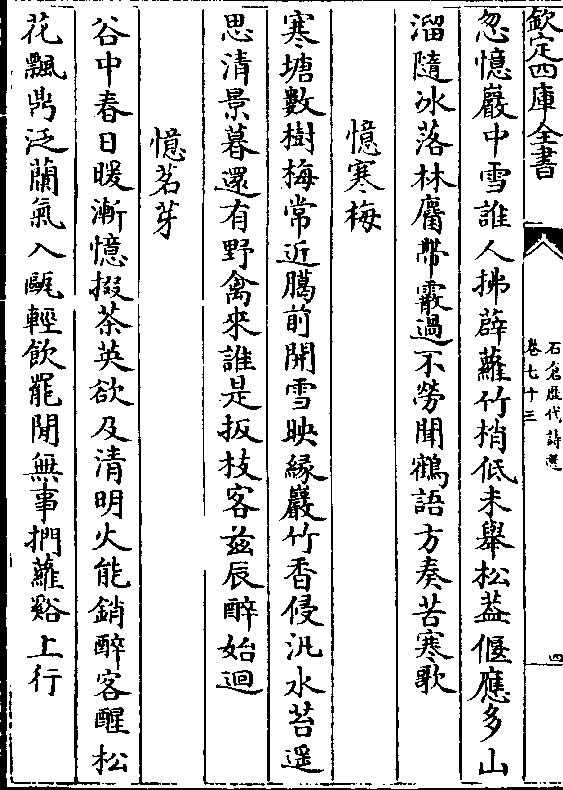 欽定四庫全書
石倉歴代詩選
卷七十三
四
忽憶巖中雪誰人拂薜蘿竹梢低未舉松蓋偃應多山
溜隨冰落林麕帶霰過不勞聞鶴語方奏苦寒歌
憶寒梅
寒塘數樹梅常近臘前開雪映緣巖竹香侵汎水苔遥
思清景暮還有野禽來誰是扳枝客兹辰醉始迴
憶茗芽
谷中春日暖漸憶掇茶英欲及清明火能銷醉客酲松
花飄鼎泛蘭氣入甌輕飲罷閒無事捫蘿谿上行